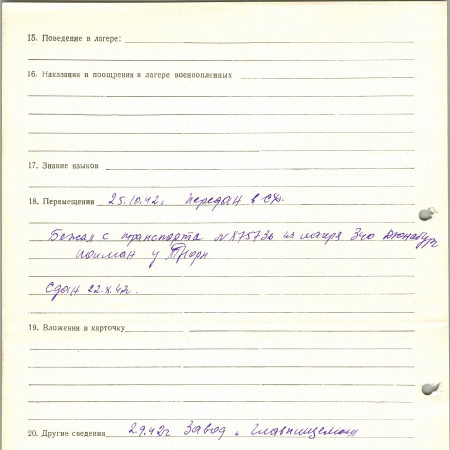 15. Поведение в лагере:
16. Наказания и поощрения в лагере военнопленных
17. Знание языков
18. Перемещения 25.10.42г. передан в СД.
Бежал с транспорта №875736 из лагеря 340 Дюнабург
пойман у Торн
Сдан 22.8.42г.
19. Вложения в карточку
20. Другие сведения 2.9.42г Завод